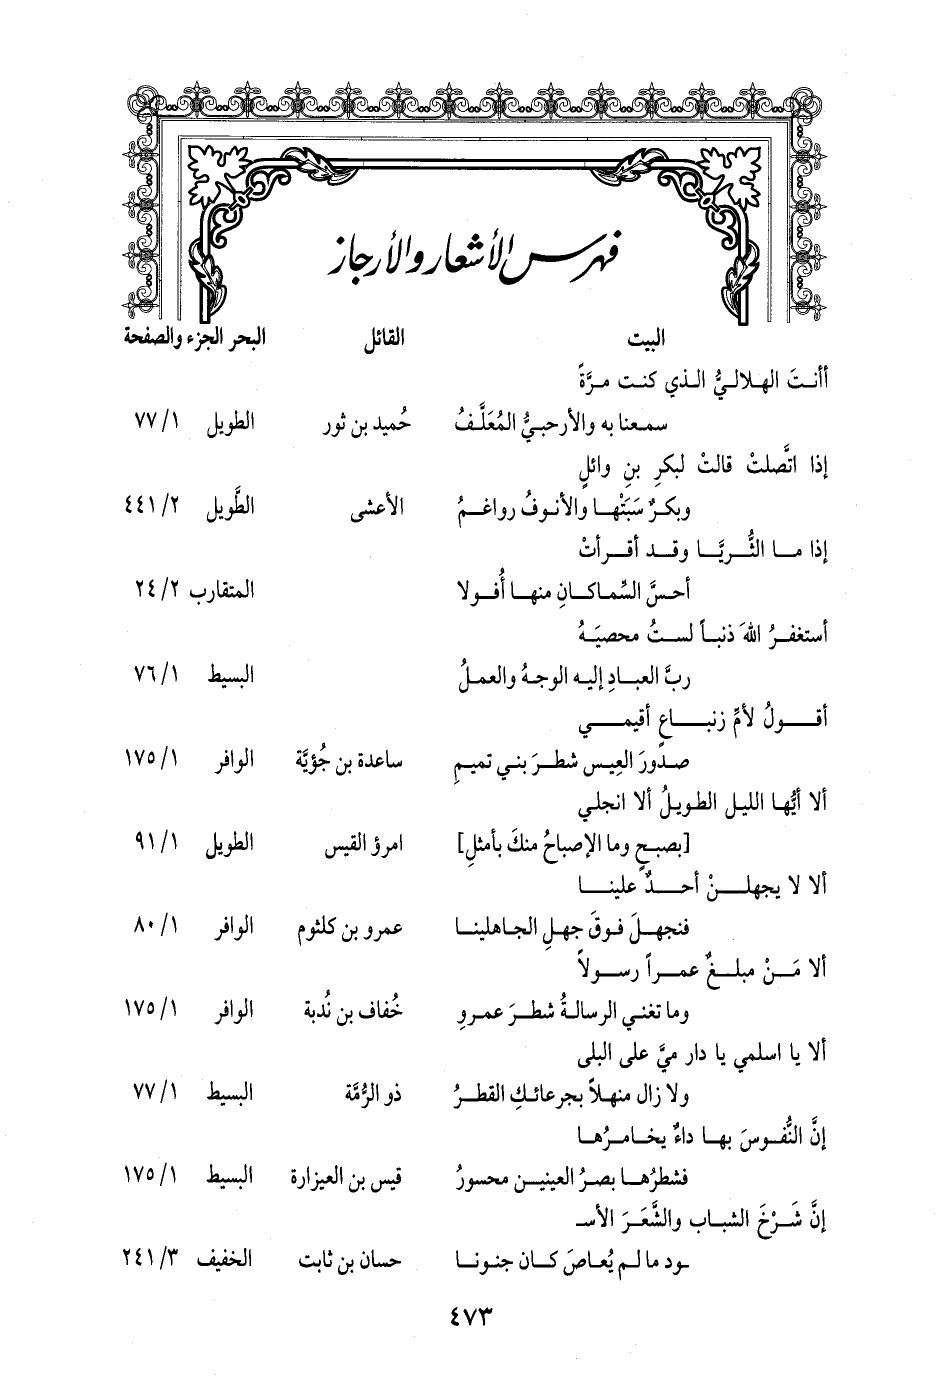 فهرس الأشعار والأرجاز
البيت القائل البحر الجزء والصفحة
أأنتَ الهلاليُّ الذي كنت مرَّةً
سمعنا به والأرحبيُّ المُعَلَّفُ حُميد بن ثور الطويل ٧٧/١
إذا اتَّصلتْ قالتْ لبكرِ بنِ وائلٍ
وبكرٌ سَبَتْها والأنوفُ رواغمُ الأعشى الطَّويل ٤٤١/٢
إذا ما الثُّريَّا وقد أقرأتْ
أحسَّ السِّماكانِ منها أُفولا المتقارب ٢٤/٢
أستغفرُ اللهَ ذنباً لستُ محصيَهُ
ربَّ العبادِ إليه الوجهُ والعملُ البسيط ٧٦/١
أقولُ لأمِّ زنباعٍ أقيمي
صدورَ العِيس شطرَ بني تميمِ ساعدة بن جُؤيَّة الوافر ١٧٥/١
ألا أيُّها الليل الطويلُ ألا انجلي
[بصبحٍ وما الإصباحُ منكَ بأمثلِ] امرؤ القيس الطويل ٩١/١
ألا لا يجهلنْ أحدٌ علينا
فنجهلَ فوقَ جهلِ الجاهلينا عمرو بن كلثوم الوافر ٨٠/١
ألا مَنْ مبلغٌ عمراً رسولاً
وما تغني الرسالةُ شطرَ عمروِ خُفاف بن نُدبة الوافر ١٧٥/١
ألا يا اسلمي يا دار ميَّ على البلى
ولا زال منهلاً بجرعائكِ القطرُ ذو الرُّمَّة البسيط ٧٧/١
إنَّ النُّفوسَ بها داءٌ يخامرُها
فشطرُها بصرُ العينين محسورُ قيس بن العيزارة البسيط ١٧٥/١
إنَّ شَرْخَ الشباب والشَّعَرَ الأسـ
ـود ما لم يُعاصَ كان جنونا حسان بن ثابت الخفيف ٢٤١/٣
٤٧٣